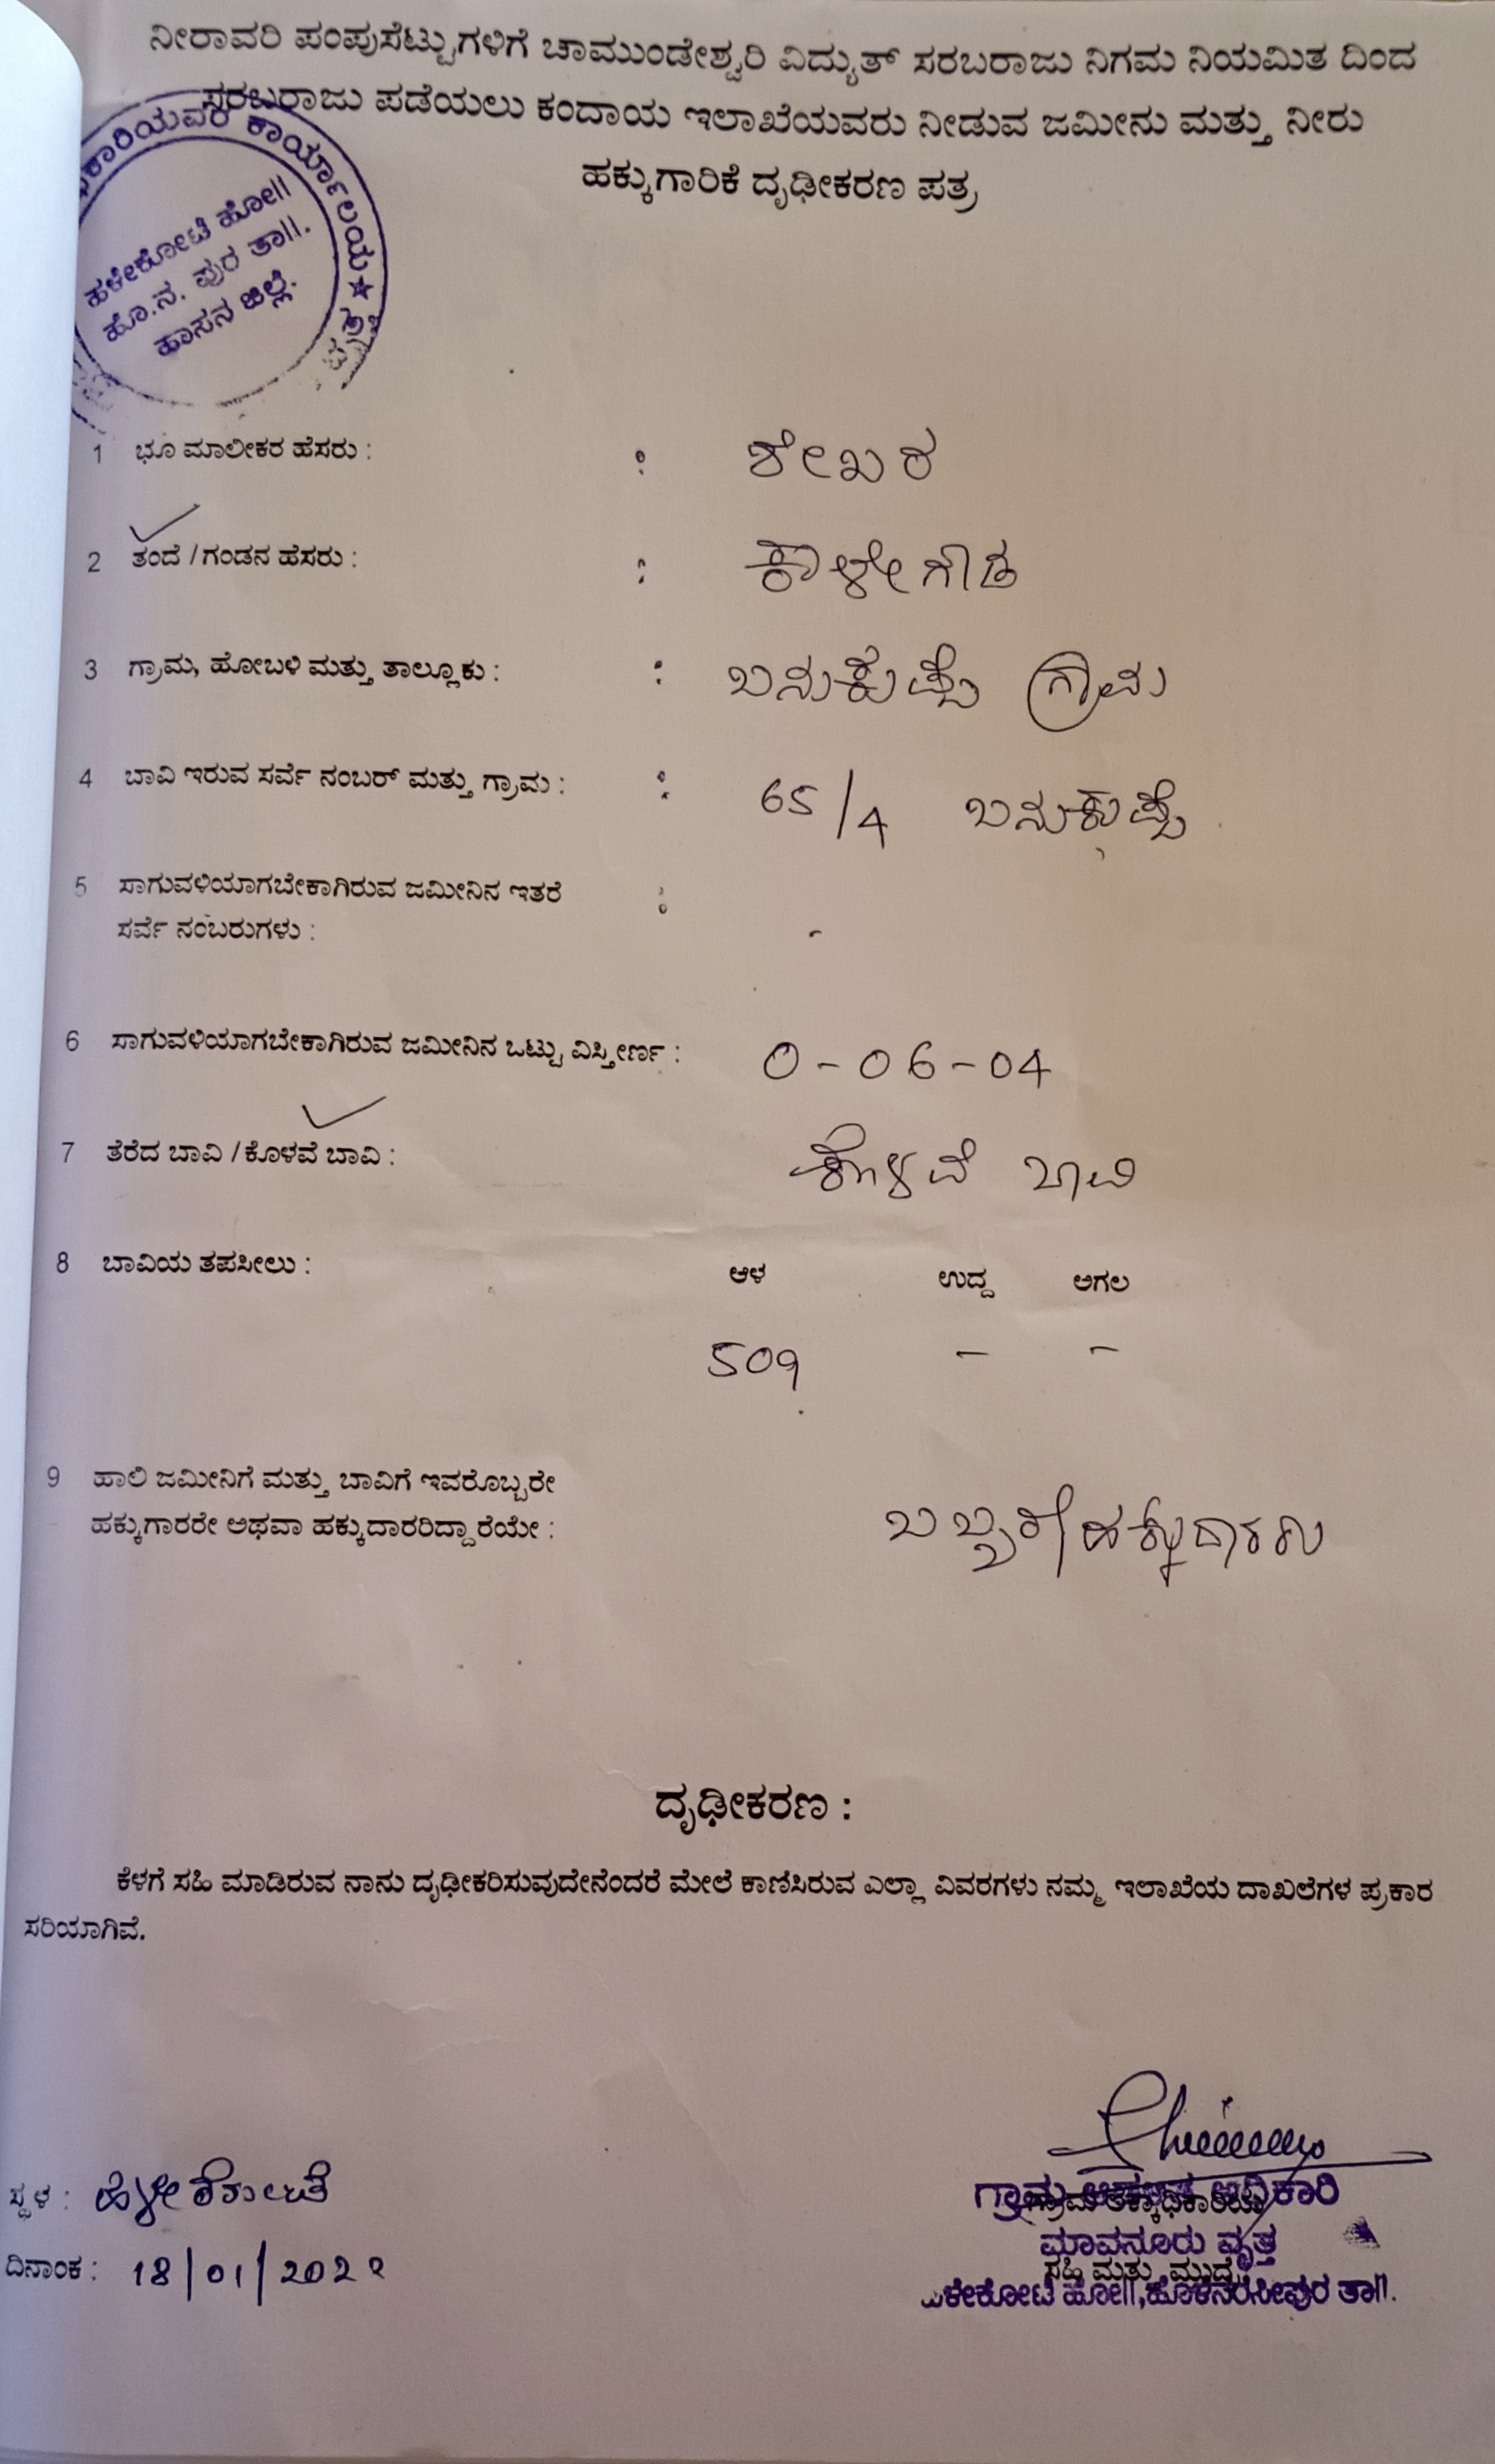 ನೀರಾವರಿ ಪಂಪುಸೆಟ್ಟುಗಳಿಗೆ ಚಾಮುಂಡೇಶ್ವರಿ ವಿದ್ಯುತ್ ಸರಬರಾಜು ನಿಗಮ ನಿಯಮಿತ ದಿಂದ
ಸರಬರಾಜು ಪಡೆಯಲು ಕಂದಾಯ ಇಲಾಖೆಯವರು ನೀಡುವ ಜಮೀನು ಮತ್ತು ನೀರು
ಹಕ್ಕುಗಾರಿಕೆ ದೃಢೀಕರಣ ಪತ್ರ
ಕಾರ್ಯಾಲಯ ★
ಹಳೇಕೋಟೆ ಹೋ||
ಹೊ.ನ. ಪುರ ತಾ||.
ಹಾಸನ ಜಿಲ್ಲೆ.
1 ಭೂ ಮಾಲೀಕರ ಹೆಸರು : : ಶೇಖರ
2 ತಂದೆ / ಗಂಡನ ಹೆಸರು : : ಕಾಳೇಗೌಡ
3 ಗ್ರಾಮ, ಹೋಬಳಿ ಮತ್ತು ತಾಲ್ಲೂಕು : : ಬನುಕುಪ್ಪೆ ಗ್ರಾಮ
4 ಬಾವಿ ಇರುವ ಸರ್ವೆ ನಂಬರ್ ಮತ್ತು ಗ್ರಾಮ : : 65/4 ಬನುಕುಪ್ಪೆ
5 ಸಾಗುವಳಿಯಾಗಬೇಕಾಗಿರುವ ಜಮೀನಿನ ಇತರೆ :
ಸರ್ವೆ ನಂಬರುಗಳು : -
6 ಸಾಗುವಳಿಯಾಗಬೇಕಾಗಿರುವ ಜಮೀನಿನ ಒಟ್ಟು ವಿಸ್ತೀರ್ಣ : 0-06-04
7 ತೆರೆದ ಬಾವಿ / ಕೊಳವೆ ಬಾವಿ : ಕೊಳವೆ ಬಾವಿ
8 ಬಾವಿಯ ತಪಸೀಲು : ಆಳ ಉದ್ದ ಅಗಲ
509 - -
9 ಹಾಲಿ ಜಮೀನಿಗೆ ಮತ್ತು ಬಾವಿಗೆ ಇವರೊಬ್ಬರೇ
ಹಕ್ಕುಗಾರರೇ ಅಥವಾ ಹಕ್ಕುದಾರರಿದ್ದಾರೆಯೇ : ಹಕ್ಕುದಾರರು
ದೃಢೀಕರಣ :
ಕೆಳಗೆ ಸಹಿ ಮಾಡಿರುವ ನಾನು ದೃಢೀಕರಿಸುವುದೇನೆಂದರೆ ಮೇಲೆ ಕಾಣಿಸಿರುವ ಎಲ್ಲಾ ವಿವರಗಳು ನಮ್ಮ ಇಲಾಖೆಯ ದಾಖಲೆಗಳ ಪ್ರಕಾರ
ಸರಿಯಾಗಿವೆ.
ಸ್ಥಳ : ಹಳೇಕೋಟೆ
ದಿನಾಂಕ : 18/01/2022
ಗ್ರಾಮ ಆಡಳಿತ ಅಧಿಕಾರಿ
ಮಾವನೂರು ವೃತ್ತ
ಸಹಿ ಮತ್ತು ಮುದ್ರೆ
ಹಳೇಕೋಟೆ ಹೋ||,ಹೊಳೆನರಸೀಪುರ ತಾ||.